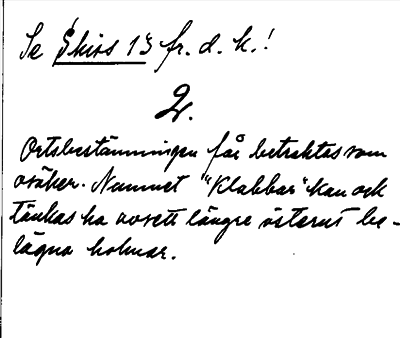 Se Skirs 13 fr. d. k.!
2.
Ortsbestämningen får betraktas som
osäker. Namnet "Klabbar" kan ock
tänkas ha avsett längre österut be-
lägna holmar.